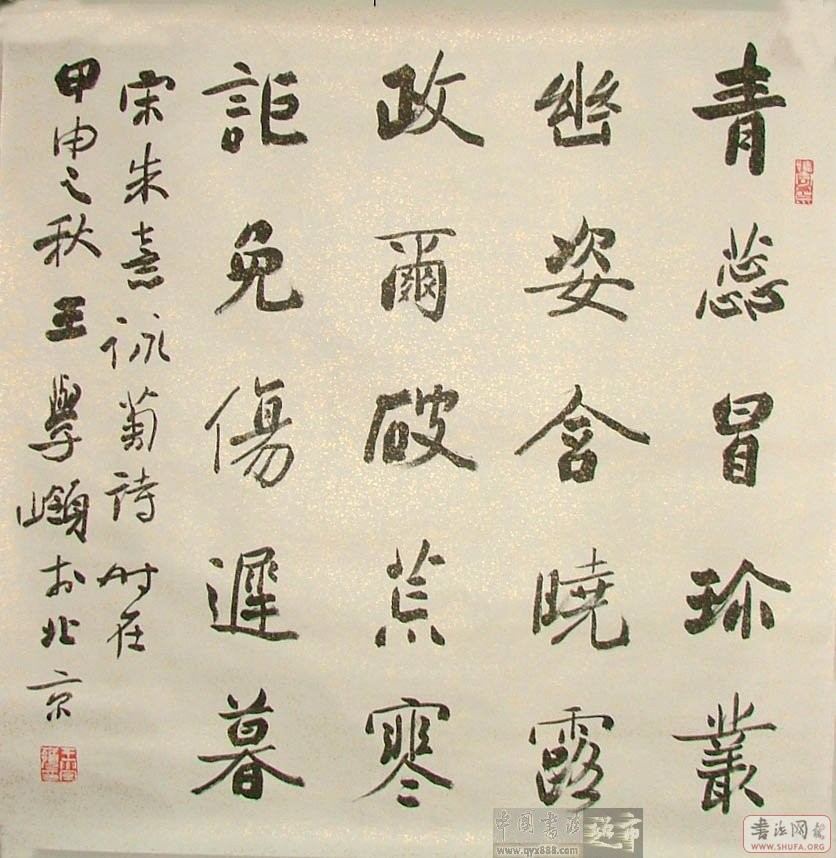 青蕊冒珍叢
幽姿含曉露
政爾破荒寒
詎免傷遲暮
宋朱熹詠菊詩時在
甲申之秋王學嶺於北京
中国書法超市
www.qyx888.com
書法网
WWW.SHUFA.ORG